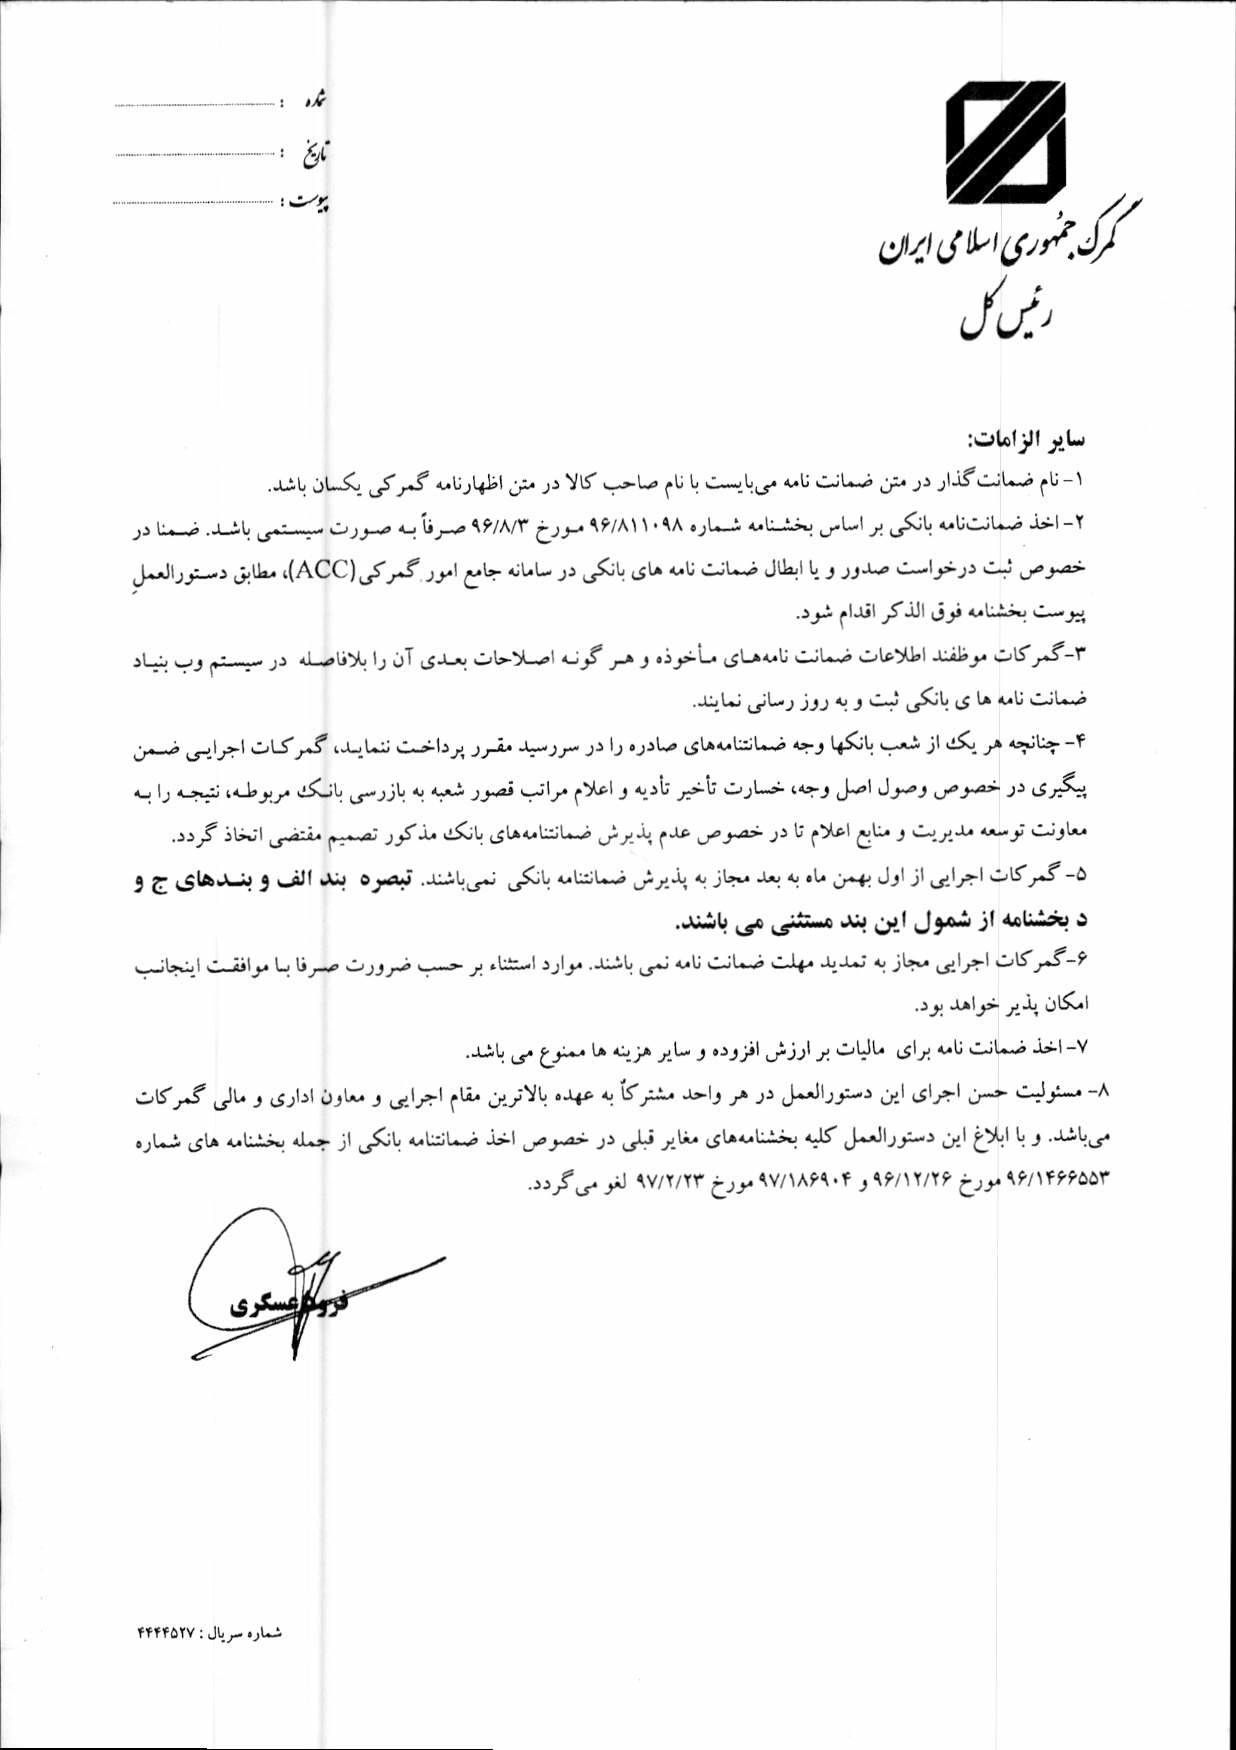 شماره :
تاریخ :
پیوست :
گمرک جمهوری اسلامی ایران
رئیس کل
سایر الزامات:
۱- نام ضمانت‌گذار در متن ضمانت نامه می‌بایست با نام صاحب کالا در متن اظهارنامه گمرکی یکسان باشد.
۲- اخذ ضمانت‌نامه بانکی بر اساس بخشنامه شماره ۹۶/۸۱۱۰۹۸ مورخ ۹۶/۸/۳ صرفاً به صورت سیستمی باشد. ضمنا در
خصوص ثبت درخواست صدور و یا ابطال ضمانت نامه های بانکی در سامانه جامع امور گمرکی (ACC)، مطابق دستورالعمل
پیوست بخشنامه فوق الذکر اقدام شود.
۳-گمرکات موظفند اطلاعات ضمانت نامه‌های مأخوذه و هر گونه اصلاحات بعدی آن را بلافاصله در سیستم وب بنیاد
ضمانت نامه ها ی بانکی ثبت و به روز رسانی نمایند.
۴- چنانچه هر یک از شعب بانکها وجه ضمانتنامه‌های صادره را در سررسید مقرر پرداخت ننماید، گمرکات اجرایی ضمن
پیگیری در خصوص وصول اصل وجه، خسارت تأخیر تأدیه و اعلام مراتب قصور شعبه به بازرسی بانک مربوطه، نتیجه را به
معاونت توسعه مدیریت و منابع اعلام تا در خصوص عدم پذیرش ضمانتنامه‌های بانک مذکور تصمیم مقتضی اتخاذ گردد.
۵- گمرکات اجرایی از اول بهمن ماه به بعد مجاز به پذیرش ضمانتنامه بانکی نمی‌باشند. تبصره بند الف و بندهای ج و
د بخشنامه از شمول این بند مستثنی می باشند.
۶-گمرکات اجرایی مجاز به تمدید مهلت ضمانت نامه نمی باشند. موارد استثناء بر حسب ضرورت صرفا با موافقت اینجانب
امکان پذیر خواهد بود.
۷- اخذ ضمانت نامه برای مالیات بر ارزش افزوده و سایر هزینه ها ممنوع می باشد.
۸- مسئولیت حسن اجرای این دستورالعمل در هر واحد مشترکاً به عهده بالاترین مقام اجرایی و معاون اداری و مالی گمرکات
می‌باشد. و با ابلاغ این دستورالعمل کلیه بخشنامه‌های مغایر قبلی در خصوص اخذ ضمانتنامه بانکی از جمله بخشنامه های شماره
۹۶/۱۴۶۶۵۵۳ مورخ ۹۶/۱۲/۲۶ و ۹۷/۱۸۶۹۰۴ مورخ ۹۷/۲/۲۳ لغو می‌گردد.
فرود عسگری
شماره سریال : ۴۴۴۴۵۲۷